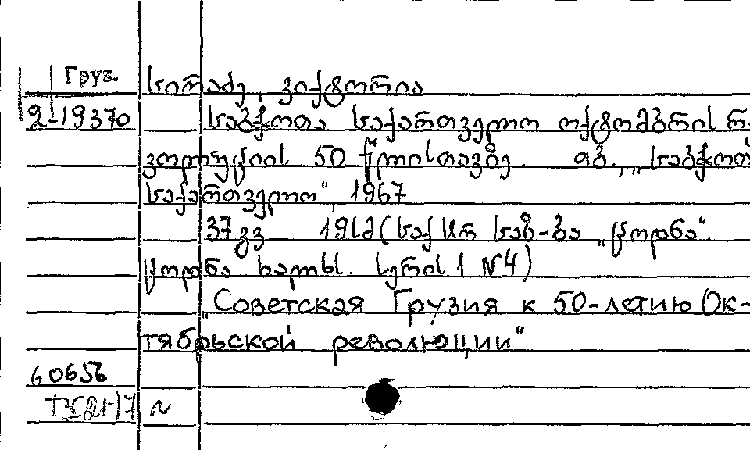 Груз. სირაძე, ვიქტორია
2-19370 საბჭოთა საქართველო ოქტომბრის რე-
ვოლუციის 50 წლისთავზე. თბ., „საბჭოთა
საქართველო“, 1967
37გვ 19სმ (საქ სსრ საზ-ბა „ცოდნა“
ცოდნა ხალხს. სერის 1 №4)
„Советская Грузия к 50-летию Ок-
тябрьской революции“
60656